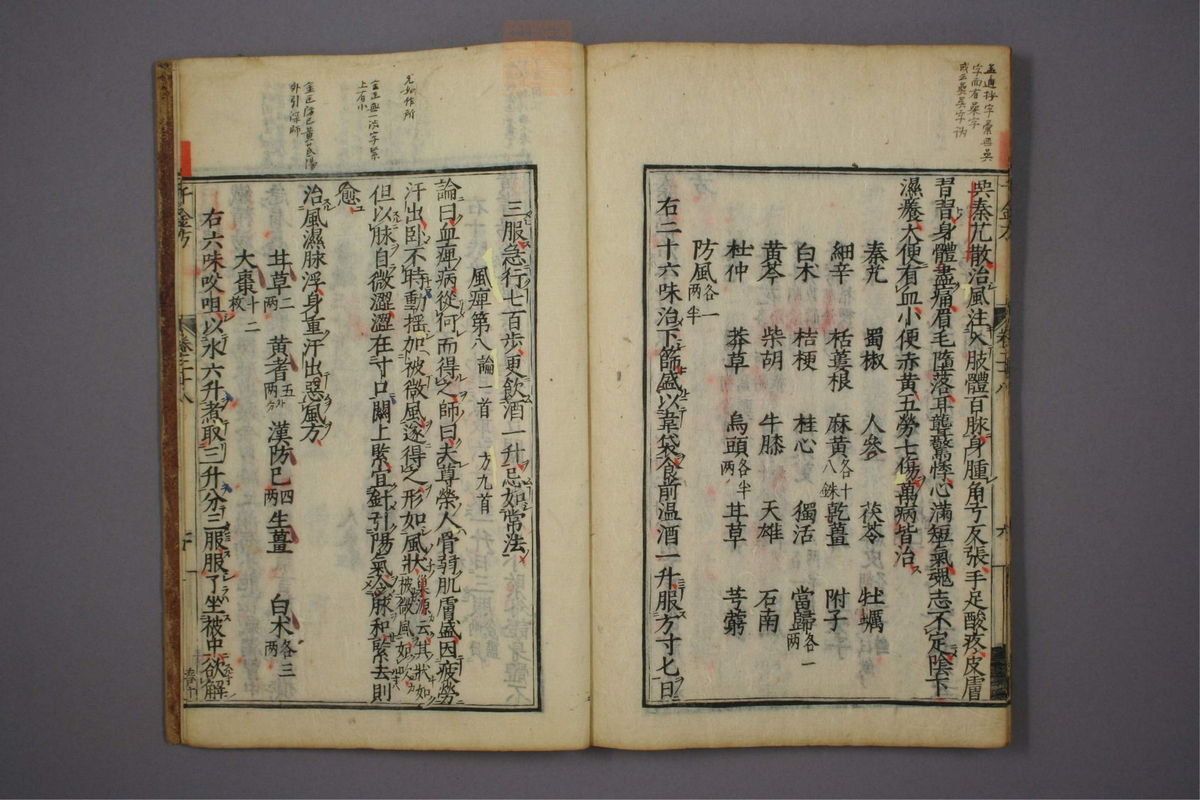 吳秦艽散治風注入肢體百脉身腫角弓反張手足酸疼皮膚
習習身體盡痛眉毛墮落耳聾驚悸心滿短氣魂志不定陰下
濕癢大便有血小便赤黃五勞七傷萬病皆治
秦艽 蜀椒 人參 茯苓 牡蠣
細辛 栝蔞根 麻黃各十八銖 乾薑 附子
白术 桔梗 桂心 獨活 當歸各一兩
黃芩 柴胡 牛膝 天雄 石南
杜仲 莽草 烏頭各半兩 甘草 芎藭
防風各一兩半
右二十六味治下篩盛以韋袋食前温酒一升服方寸匕日
三服急行七百步更飲酒一升忌如常法
風痺第八論一首 方九首
論曰血痺病從何而得之師曰夫尊榮人骨弱肌膚盛因疲勞
汗出卧不時動搖加被微風遂得之形如風狀巢源云其狀如被微風所吹
但以脉自微澀澀在寸口關上緊宜針引陽氣令脉和緊去則
愈
治風濕脉浮身重汗出惡風方
甘草二兩 黃耆五兩 漢防已四兩 生薑 白术各三兩
大棗十二枚
右六味㕮咀以水六升煮取三升分三服服了坐被中欲解
千金方
卷二十八